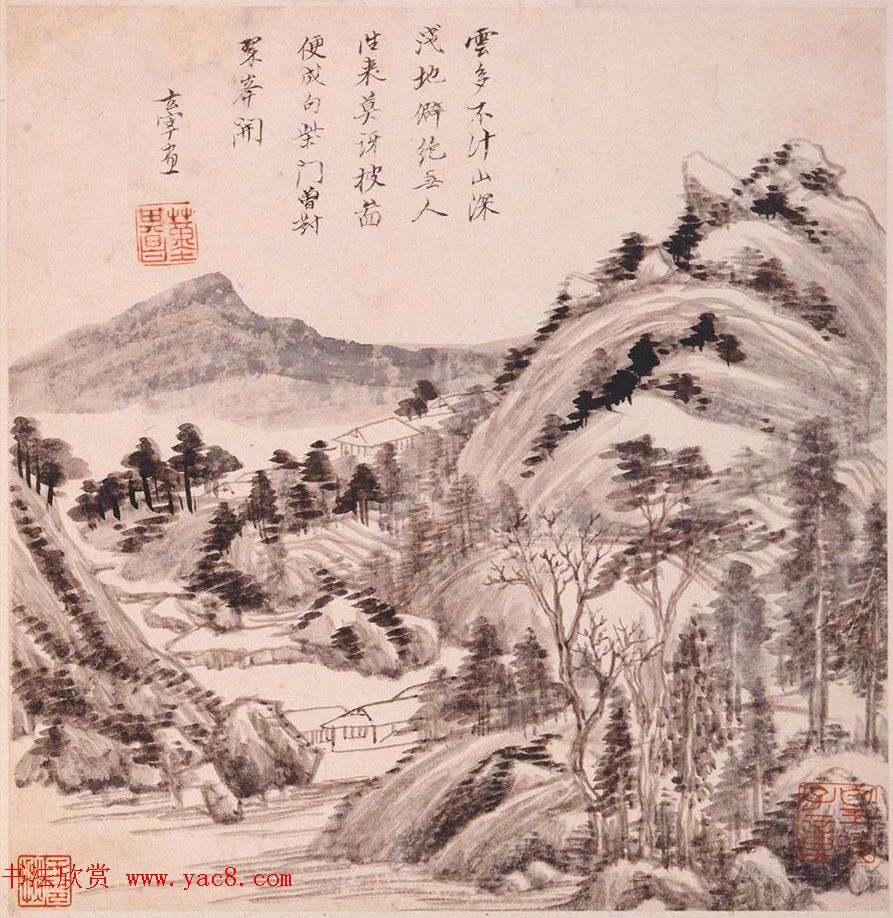 雲多不計山深
淺地僻絕無人
往來莫訝披圖
便成句柴門曾對
翠峯開
玄宰畫
董其昌
书法欣赏 www.yac8.com